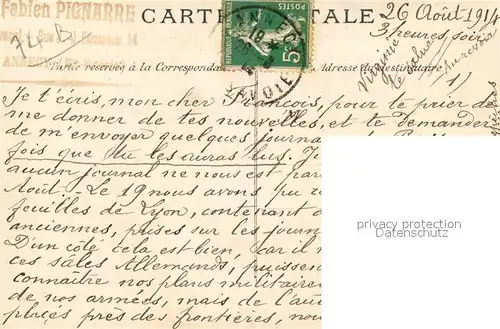 Fabien PIGNARRE
74 B
CARTE POSTALE
26 Août 1914
3 heures soir
Partie réservée à la Correspondance
Adresse du destinataire
Virginie
te salue
Au revoir
1)
ANNECY
SAVOIE
5c
Je t'écris, mon cher François, pour te prier de
me donner de tes nouvelles, et te demander
de m'envoyer quelques journa
fois que tu les auras lus. J
aucun journal ne nous est par
Août. Le 19 nous avons pu re
feuilles de Lyon, contenant d
anciennes, puisées sur les journ
D'un côté cela est bien, car il n
ces sales Allemands, puissen
connaître nos plans militaire
de nos armées, mais de l'au
placés près des frontières, nou
privacy protection
Datenschutz